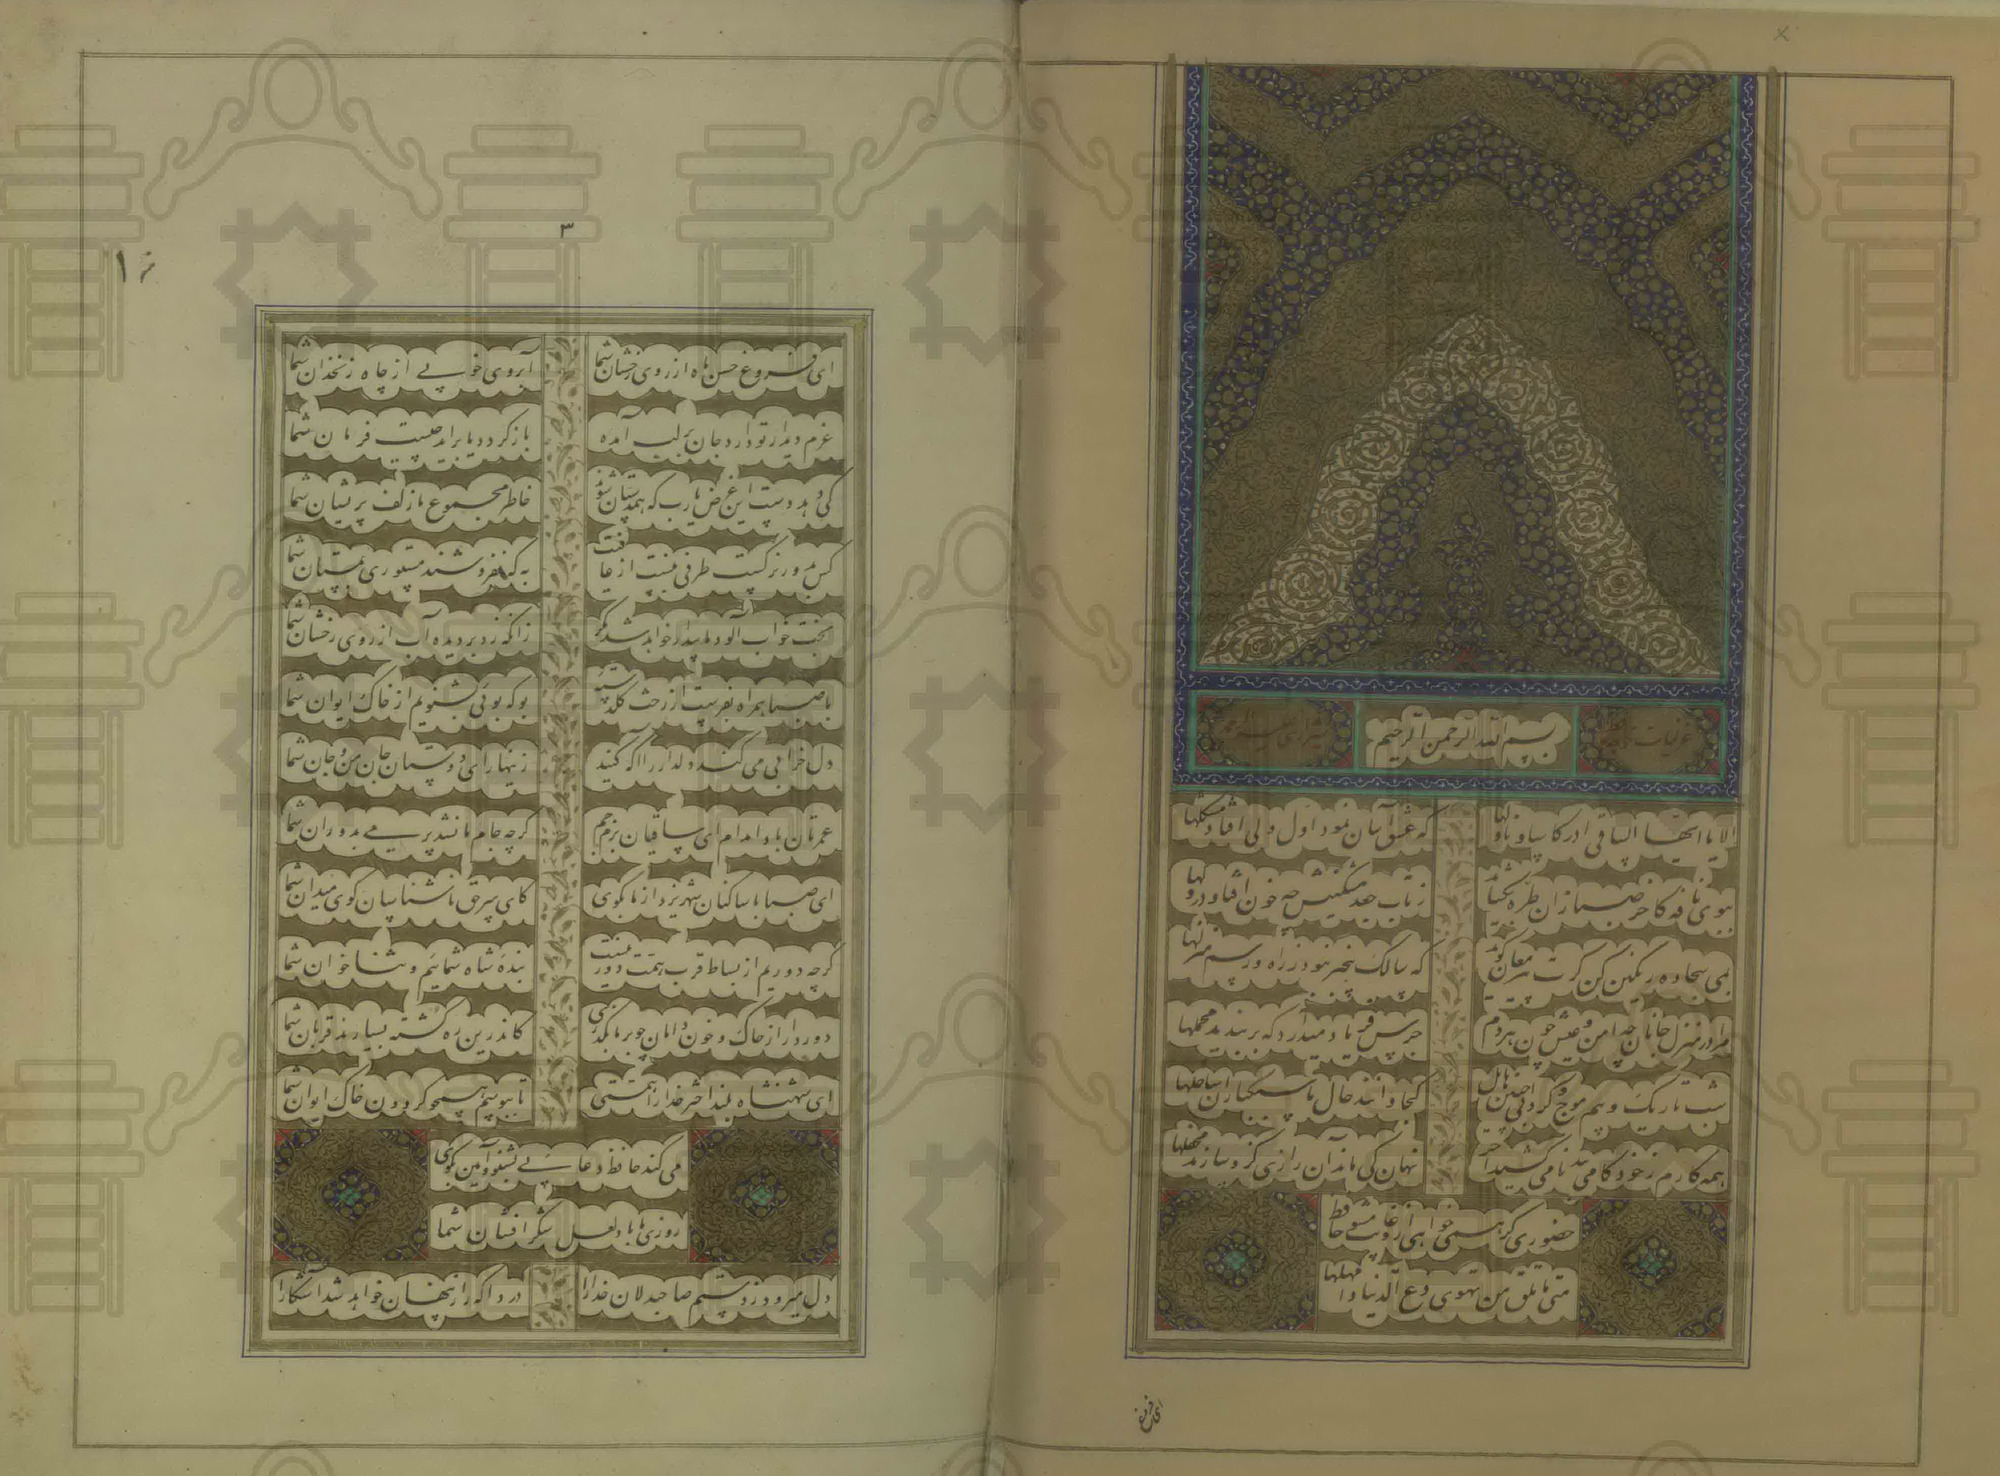 بسم الله الرحمن الرحیم
الا یا ایها الساقی ادر کاسا و ناولها که عشق آسان نمود اول ولی افتاد مشکلها
ببوی نافه کاخر صبا زان طره بگشاید ز تاب جعد مشکینش چه خون افتاد در دلها
بمی سجاده رنگین کن گرت پیر مغان گوید که سالک بیخبر نبود ز راه و رسم منزلها
مرا در منزل جانان چه امن و عیش چون هر دم جرس فریاد میدارد که بربندید محملها
شب تاریک و بیم موج و گردابی چنین هایل کجا دانند حال ما سبکباران ساحلها
همه کارم ز خود کامی به بدنامی کشید آخر نهان کی ماند آن رازی کزو سازند محفلها
حضوری گر همی خواهی ازو غایب مشو حافظ
متی ما تلق من تهوی دع الدنیا و اهملها
ای فروغ
۳
ای فروغ حسن ماه از روی رخشان شما آبروی خوبی از چاه زنخدان شما
عزم دیدار تو دارد جان بر لب آمده باز گردد یا براید چیست فرمان شما
کی دهد دست این غرض یارب که همدستان شوند خاطر مجموع ما زلف پریشان شما
کس بدور نرگست طرفی نبست از عافیت به که نفروشند مستوری بمستان شما
بخت خواب آلود ما بیدار خواهد شد مگر زانکه زد بر دیده آب از روی رخشان شما
با صبا همراه بفرست از رخت گلدسته بو که بوئی بشنویم از خاک ایوان شما
دل خرابی می کند دلدار را آگه کنید زینهار ای دوستان جان من و جان شما
عمرتان بادا مدام ای ساقیان بزم جم گرچه جام ما نشد پر می بدوران شما
ای صبا با ساکنان شهر یزد از ما بگوی کای سر حق ناشناسان گوی میدان شما
گرچه دوریم از بساط قرب همت دور نیست بنده شاه شمائیم و ثنا خوان شما
دور دار از خاک و خون دامان چو بر ما بگذری کاندرین ره کشته بسیارند قربان شما
ای شهنشاه بلند اختر خدا را همتی تا ببوسم همچو گردون خاک ایوان شما
می کند حافظ دعائی بشنو و آمین بگوی
روزی ما باد لعل شکر افشان شما
دل میرود ز دستم صاحبدلان خدا را دردا که راز پنهان خواهد شد آشکارا